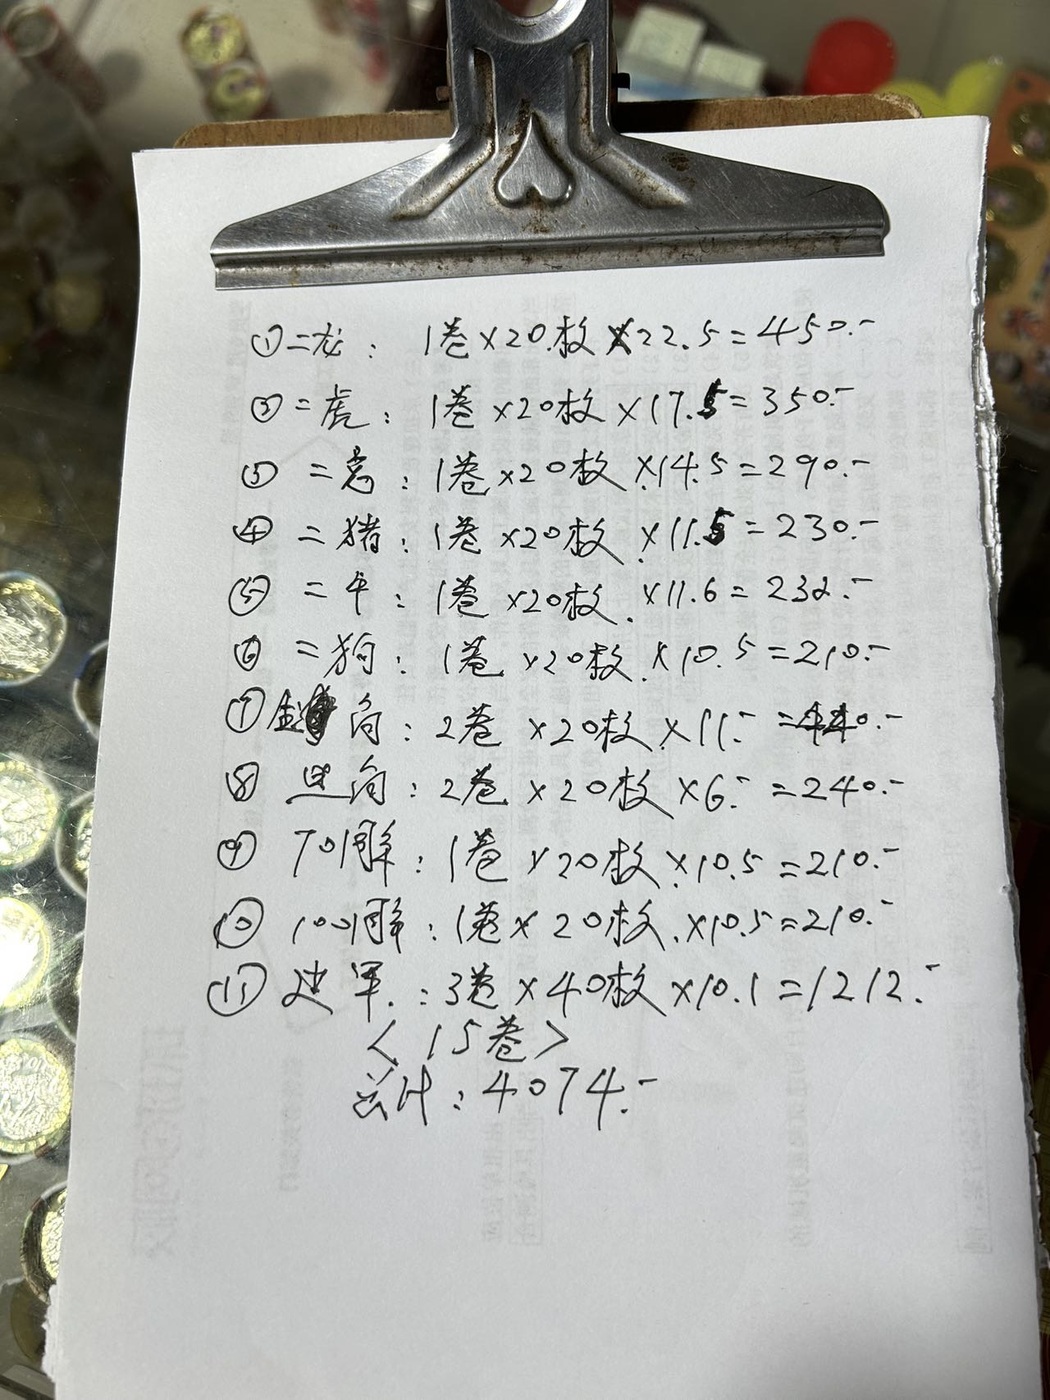 ①二龙：1卷×20枚×22.5=450.-
②二虎：1卷×20枚×17.5=350.-
③二兔：1卷×20枚×14.5=290.-
④二猪：1卷×20枚×11.5=230.-
⑤二牛：1卷×20枚×11.6=232.-
⑥二狗：1卷×20枚×10.5=210.-
⑦ 向：2卷×20枚×11.-=440.-
⑧ 向：2卷×20枚×6.-=240.-
⑨70周年：1卷×20枚×10.5=210.-
⑩100周年：1卷×20枚×10.5=210.-
⑪建军：3卷×40枚×10.1=1212.-
<15卷>
总计：4074.-